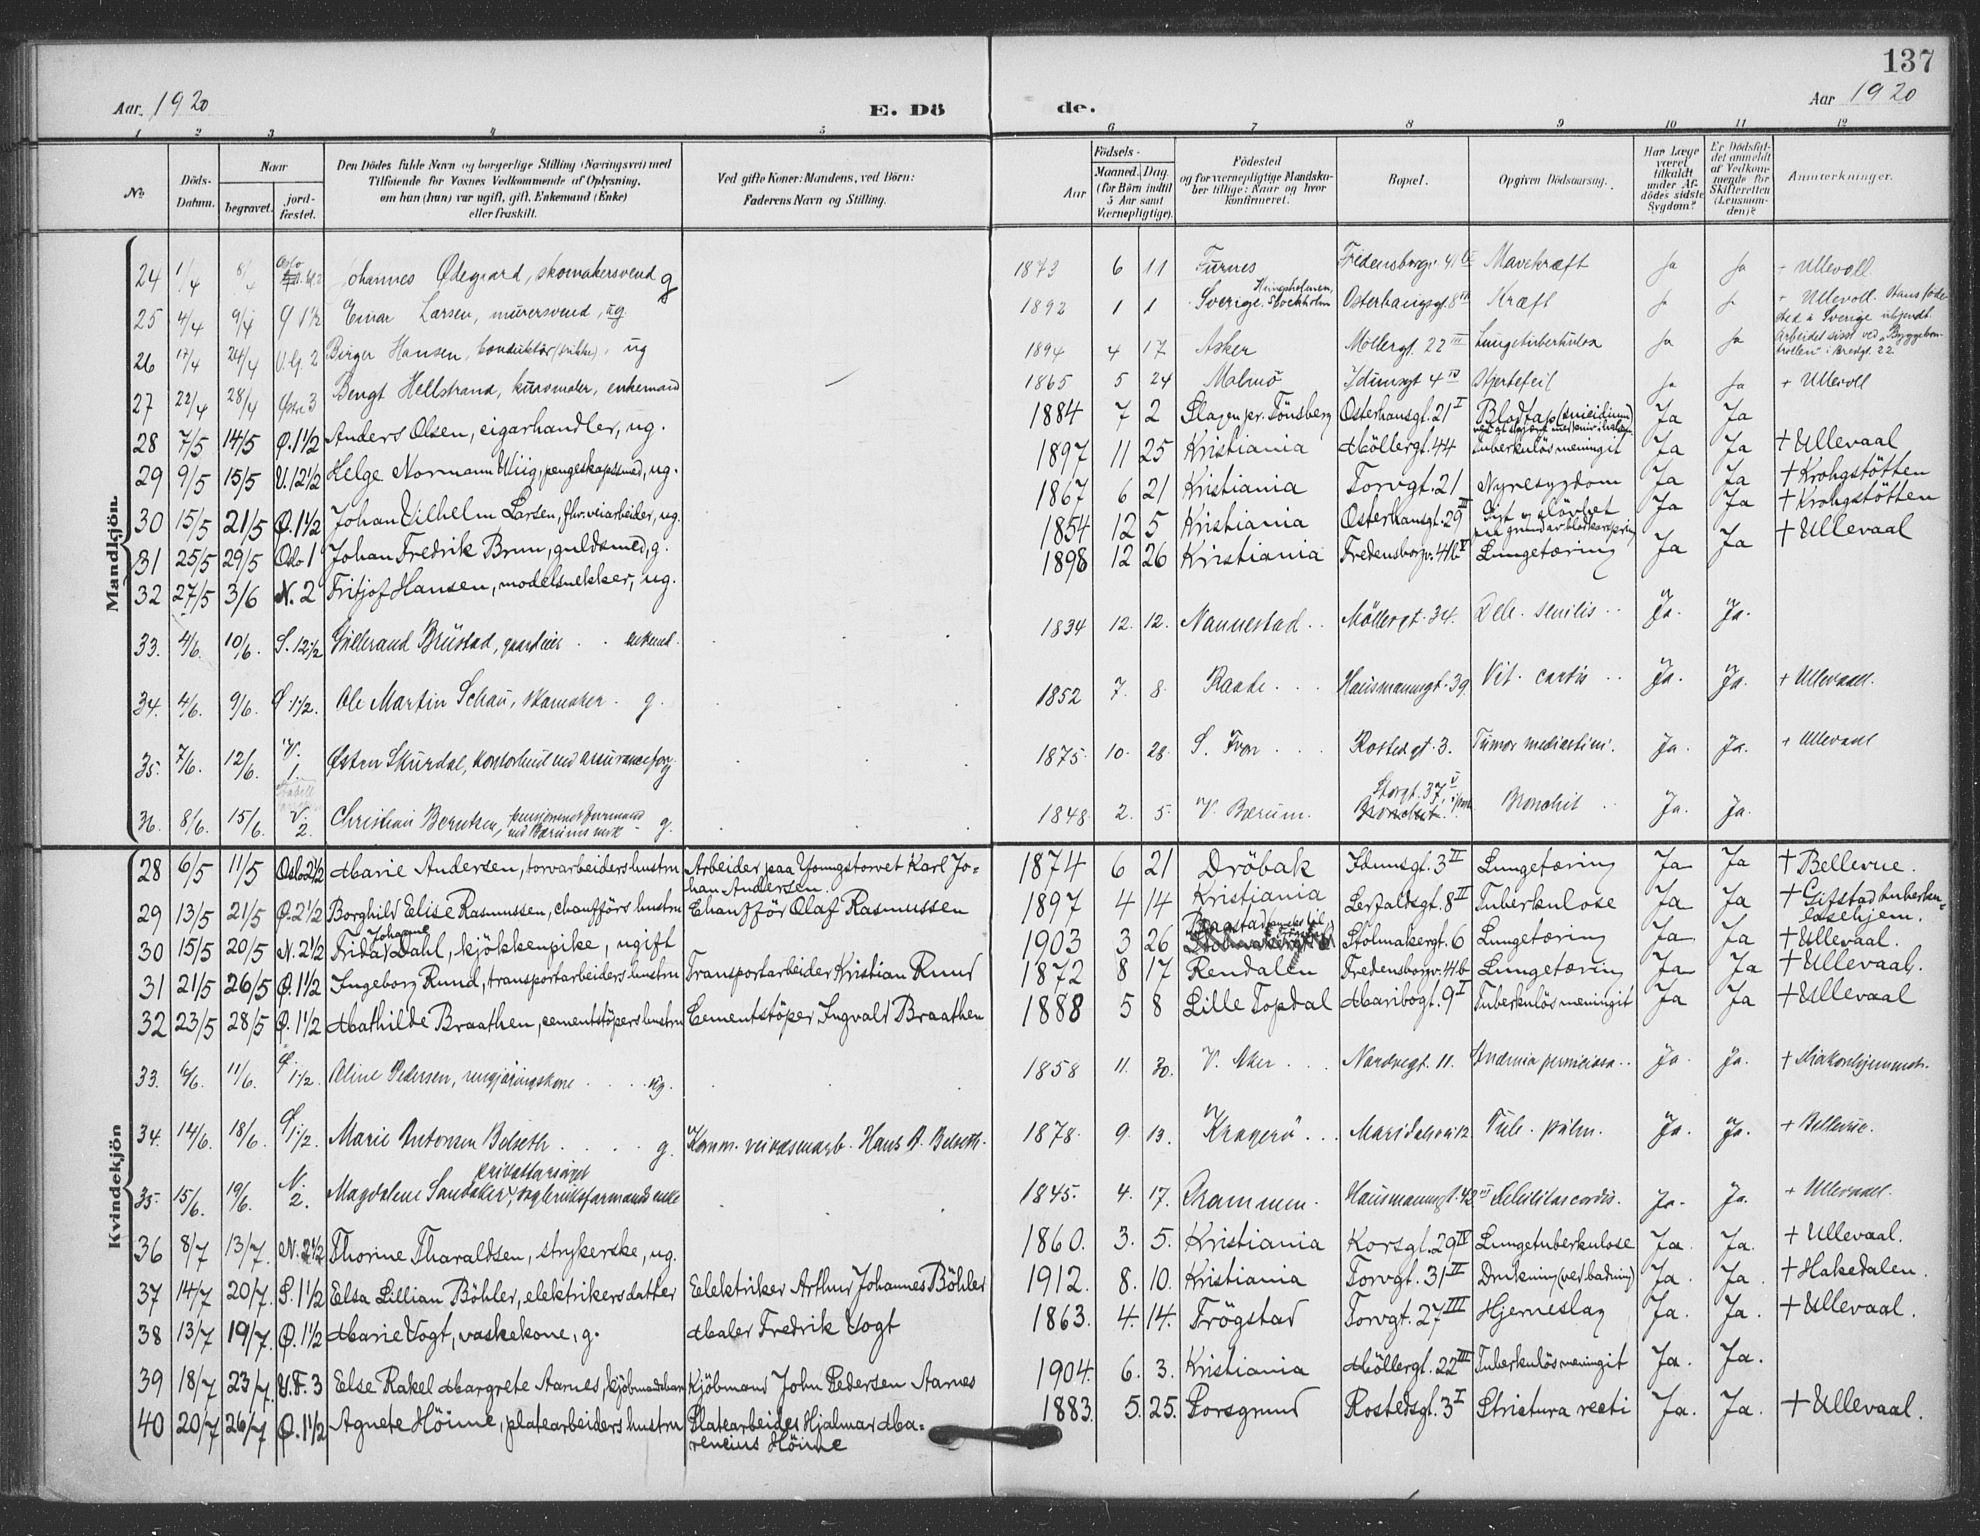 137
Aar 1920
E. Dö
de.
Aar 1920
1 2 3 4 5 6 7 8 9 10 11 12
No
Döds-Datum.
Naar
begravet.
jord-fæstet.
Den Dödes fulde Navn og borgerlige Stilling (Næringsvei) med
Tilföiende for Voxnes Vedkommende af Oplysning,
om han (hun) var ugift, gift, Enkemand (Enke)
eller fraskilt.
Ved gifte Koner: Mandens, ved Börn:
Faderens Navn og Stilling.
Födsels-
Aar
Maaned. Dag.
(for Börn indtil
5 Aar samt
Værnepligtige).
Födested
og for værnepligtige Mandska-
ber tillige: Naar og hvor
konfirmeret.
Bopæl.
Opgiven Dödsaarsag.
Har Læge
været
tilkaldt
under Af-
dödes sidste
Sygdom?
Er Dödsfal-
det anmeldt
af Vedkom-
mende for
Skifteretten
(Lensman-
den)?
Anmærkninger.
Mandkjön
24 1/4 8/4 Oslo Johannes Ødegaard, skomakersvend g 1873 6 11 Furnes Fredensborgv. 41 Mavekræft Ja Ja + Ullevoll
25 4/4 9/4 Ø 1½ Einar Larsen, murersvend, ug. 1892 1 1 Kungsholmen, Sverige. Stockholm Osterhausgt. 8 Kræft Ja Ja + Ullevoll. Hans føde-
sted i Sverige ukjendt.
26 17/4 24/4 V. G. 2 Birger Hansen, konduktör (trikk), ug 1894 4 17 Asker Möllergt. 22 III Lungetuberkulose Ja Ja Arbeidet sist ved "Byggekon-
trollen" i Bredgt. 22.
27 22/4 28/4 Østre 3 Bengt Hellstrand, kursmaler, enkemand 1865 5 24 Malmö Idunsgt 4 IV Hjertefeil Ja Ja + Ullevoll
28 7/5 14/5 Ø. 1½ Anders Olsen, cigarhandler, ug. 1884 7 2 Slagen pr. Tönsberg Osterhausgt. 21 I Blodtap (suicidium) Ja Ja
29 9/5 15/5 V. 12½ Helge Normann Wiig, pengeskapssmed, ug. 1897 11 25 Kristiania Möllergt. 44 Tuberkulös meningit Ja Ja + Ullevaal
30 15/5 21/5 Ø. 1½ Johan Vilhelm Larsen, fhv. veiarbeider, ug. 1867 6 21 Kristiania Torvgt. 21 Nyresygdom Ja Ja + Krohgstötten
31 25/5 29/5 Oslo 1 Johan Fredrik Brun, guldsmed, g. 1854 12 5 Kristiania Osterhausgt. 29 II Gigt og slövhet Ja Ja + Krohgstötten
32 27/5 3/6 N. 2 Fritjof Hansen, modelsnekker, ug. 1898 12 26 Kristiania Fredensborgv. 46 V Lungetæring Ja Ja + Ullevaal
33. 4/6. 10/6. S. 12½ Gulbrand Brustad, gaardeier enkemd. 1834 12. 12. Nannestad Möllergt. 34. Deb. senilis Ja. Ja.
34. 4/6. 9/6. Ø. 1½. Ole Martin Schau, skomaker. g. 1852 7. 8. Raade Hausmannsgt. 39 Vit. cordis Ja. Ja. + Ullevaal.
35. 7/6. 12/6. V. 1. Østen Skurdal, kontorbud ved assuranceforr. g 1875. 10. 28. S. Fron Rostedgt. 3. Tumor mediastini. Ja. Ja. + Ullevaal
36. 8/6. 15/6. V. 2. Christian Berntsen, pensioneret formand
ved Bærums verk g. 1848. 2. 5. V. Bærum. Storgt. 37 V Bronchit Ja. Ja.
Kvindekjön
28 6/5 11/5 Oslo 2½ Marie Andersen, torvarbeiders hustru Arbeider paa Youngstorvet Karl Jo-
han Andersen. 1874 6 21 Dröbak Idunsgt. 3 II Lungetæring Ja Ja + Bellevue.
29 13/5 21/5 Ø. 2½ Borghild Elise Rasmussen, chaufförs hustru Chaufför Olaf Rasmussen 1897 4 14 Kristiania Lerfaldsgt. 8 II Tuberkulose Ja Ja + Gifstad tuberku-
losehjem.
30 15/5 20/5 N. 2½ Frida Johanne Dahl, kjökkenpike, ugift 1903 3 26 Baastad Stolmakergt. 6 Lungetæring Ja Ja + Ullevaal.
31 21/5 26/5 Ø. 1½ Ingeborg Ruud, transportarbeiders hustru Transportarbeider Kristian Ruud 1872 8 17 Rendalen Fredensborgv. 46 Lungetæring Ja Ja + Ullevaal.
32 23/5 28/5 Ø. 1½ Mathilde Braathen, cementstöpers hustru Cementstöper Ingvald Braathen 1888 5 8 Lille Topdal Maribogt. 9 I Tuberkulös meningit Ja Ja + Ullevaal
33. 6/6. 11/6. Ø. 1½. Oline Pedersen, rengjöringskone ug. 1858 11. 30. V. Aker Nordregt. 11. Anæmia perniciosa Ja. Ja. + Diakonhjemmet.
34. 14/6. 18/6. Ø. 1½. Marie Antonsen Belseth g. Komm. veivæsenarb. Hans A. Belseth. 1878. 9. 13. Kragerö Maridalsv. 12 Tub. pulm. Ja. Ja. + Bellevue.
35. 15/6. 19/6. N. 2. Magdalene Sandaker, privat forsörget, teglverksformands enke 1845. 4. 17. Drammen. Hausmannsgt. 42 III Debilitas cordis. Ja. Ja. + Ullevaal.
36 8/7 13/7. N. 2½ Thorine Tharaldsen, strykerske, ug. 1860. 3. 5. Kristiania Korsgt. 29 IV Lungetuberkulose Ja. Ja. + Ullevaal.
37 14/7 20/7. S. 1½ Elsa Lillian Böhler, elektrikers datter Elektriker Arthur Johannes Böhler 1912. 8. 10. Kristiania Torvgt. 31 II Drukning (ved badning) Ja. Ja. + Hakedalen.
38 13/7 19/7. Ø. 1½ Marie Vogt, vaskekone, g. Maler Fredrik Vogt 1863. 4. 14. Trögstad Torvgt. 27 III Hjerneslag Ja. Ja. + Ullevaal.
39 18/7 23/7. V. F. 3 Else Rakel Margrete Aarnes, kjöbmandsbarn Kjöbmand John Pedersen Aarnes 1904. 6. 3. Kristiania Möllergt. 22 III Tuberkulös meningit Ja. Ja.
40 20/7 26/7 Ø. 1½ Agnete Höime, platearbeiders hustru Platearbeider Hjalmar Ma-
renius Höime 1883. 5. 25. Porsgrund Rostedsgt. 3 I Strictura recti Ja. Ja. + Ullevaal.